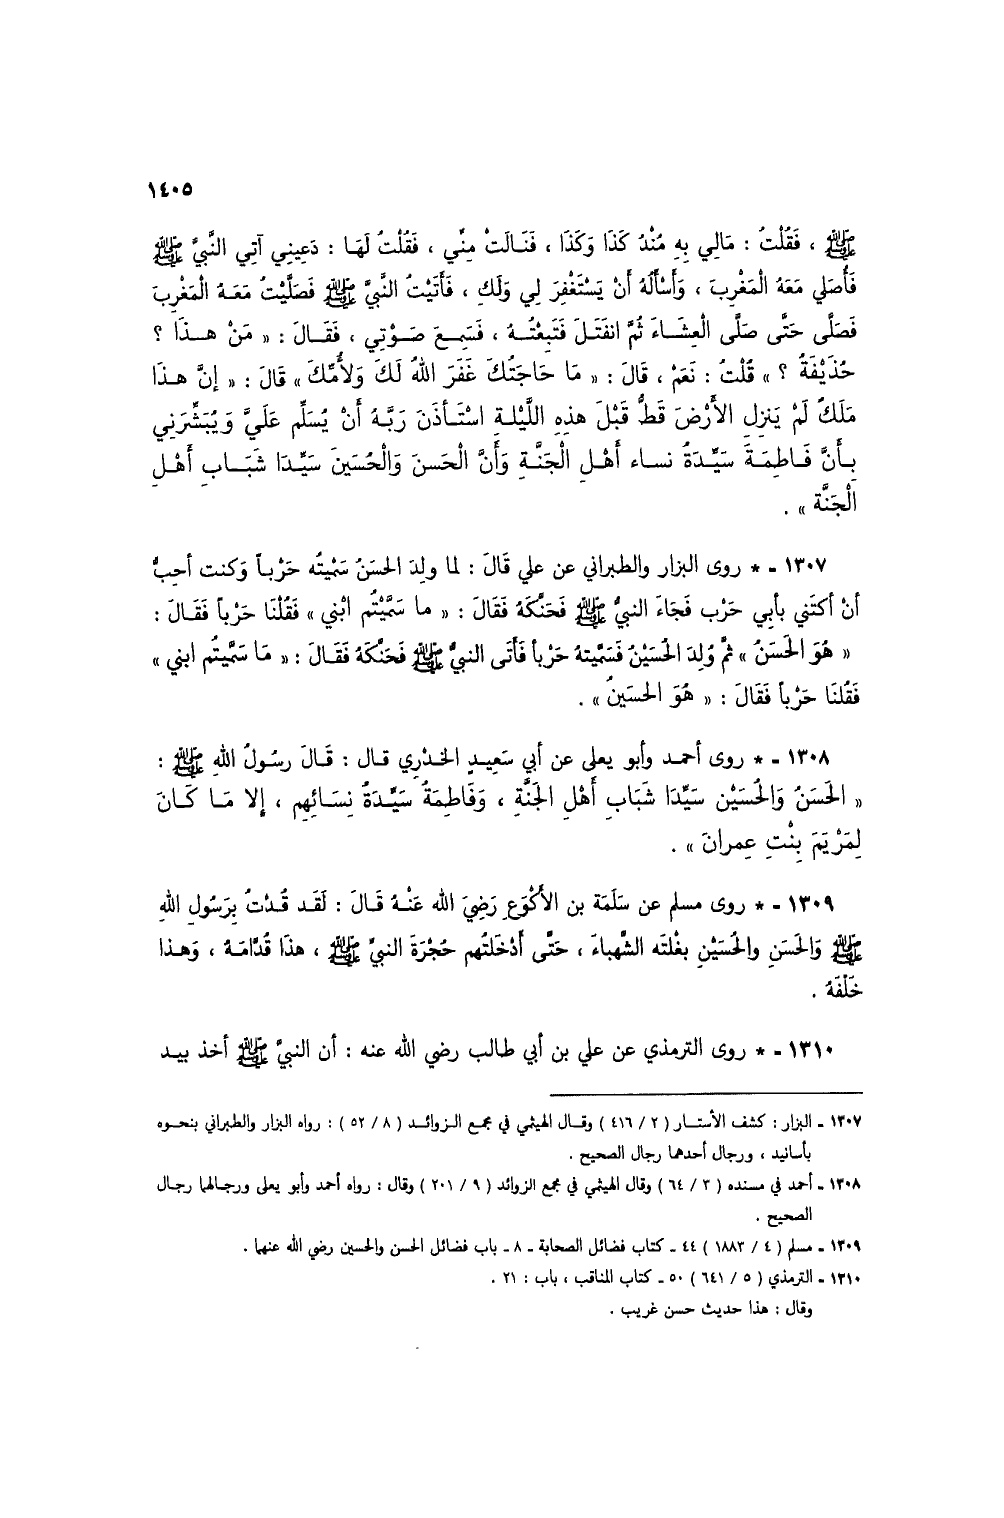 ١٤٠٥
ﷺ ، فَقُلْتُ : مَالِي بِهِ مُنْدُ كَذَا وَكَذَا ، فَنَـالَتْ مِنِّي ، فَقُلْتُ لَهَـا : دَعِينِي آتِي النَّبِيَّ ﷺ
فَأُصَلي مَعَهُ الْمَغْرِبَ ، وَأَسْأَلُهُ أَنْ يَسْتَغْفِرَ لِي وَلَكِ ، فَأَتَيْتُ النَّبِيَّ ﷺ فَصَلَّيْتُ مَعَـهُ الْمَغْرِبَ
فَصَلَّى حَتَّى صَلَّى الْعِشَـاءَ ثُمَّ انفَتَـلَ فَتَبِعْتُـهُ ، فَسَمِـعَ صَـوْتِي ، فَقَـالَ : « مَنْ هـذَا ؟
حُذَيْفَةُ ؟ » قُلْتُ : نَعَمْ ، قَالَ : « مَا حَاجَتُكَ غَفَرَ اللهُ لَكَ وَلأُمِّكَ » قَالَ : « إنَّ هـذَا
مَلَكٌ لَمْ يَنزِلِ الأَرْضَ قَطُّ قَبْلَ هذِهِ اللَّيْلَـةِ اسْتَـأذَنَ رَبَّـهُ أَنْ يُسَلِّم عَلَيَّ وَيُبَشِّرَنِي
بِـأَنَّ فَـاطِمَـةَ سَيِّـدَةُ نسـاء أَهْـلِ الْجَنَّـةِ وَأَنَّ الْحَسنَ وَالْحُسَيْنَ سَيِّـدَا شَبَـابِ أَهْـلِ
الْجَنَّة » .
١٣٠٧ - * روى البزار والطبراني عن علي قَالَ : لما ولِدَ الحَسَنُ سَمَّيْتُه حَرْبـاً وَكنت أحِبُّ
أنْ أكتَني بأَبِي حَرْب فَجَاءَ النبيُّ ﷺ فَحَنَّكَهُ فَقَالَ : « ما سَمَّيْتُم ابْني » فَقُلْنَا حَرْباً فَقَالَ :
« هُوَ الحَسَنُ » ثمَّ وُلِدَ الحُسَيْنُ فَسَمَّيتهُ حَرْباً فَأَتَى النبيُّ ﷺ فَحَنَّكَهُ فَقَالَ : « مَا سَمَّيتُم ابني »
فَقُلنَا حَرْباً فَقَالَ : « هُوَ الحسَينُ » .
١٣٠٨ - * روى أحمـد وأبو يعلى عن أبي سَعِيـدٍ الخـدْرِي قـال : قَـالَ رسُـولُ اللهِ ﷺ :
« الحَسَنُ وَالحُسَيْن سَيِّدَا شَبَابِ أَهْلِ الجَنَّةِ ، وَفَاطِمَةُ سَيِّـدَةُ نِسَـائِهِم ، إلا مَـا كَـانَ
لِمَرْيَمَ بِنْتِ عِمرانَ » .
١٣٠٩ - * روى مسلم عن سَلَمَة بن الأَكْوَعِ رَضِيَ الله عَنْـهُ قَـالَ : لَقَـد قُـدْتُ بِرَسُولِ اللهِ
ﷺ وَالحَسَنِ والحُسَيْنِ بغْلتَه الشَّهباءَ ، حَتَّى أدْخَلتُهم حُجْرَةَ النبيِّ ﷺ ، هذَا قُدَّامَـهُ ، وَهـذا
خَلْفَهُ .
١٣١٠ - * روى الترمذي عن علي بن أبي طالب رضي الله عنه : أن النبيَّ ﷺ أخذ بيـد
١٣٠٧ - البزار : كشف الأستـار ( ٢ / ٤١٦ ) وقـال الهيثمي في مجمـع الـزوائـد ( ٨ / ٥٢ ) : رواه البزار والطبراني بنحـوه
بأسانيد ، ورجال أحدهما رجال الصحيح .
١٣٠٨ - أحمد في مسنده ( ٣ / ٦٤ ) وقال الهيثمي في مجمع الزوائد ( ٩ / ٢٠١ ) وقال : رواه أحمد وأبو يعلى ورجـالهما رجـال
الصحيح .
١٣٠٩ - مسلم ( ٤ / ١٨٨٣ ) ٤٤ - كتاب فضائل الصحابة - ٨ - باب فضائل الحسن والحسين رضي الله عنهما .
١٣١٠ - الترمذي ( ٥ / ٦٤١ ) ٥٠ - كتاب المناقب ، باب : ٢١ .
وقال : هذا حديث حسن غريب .